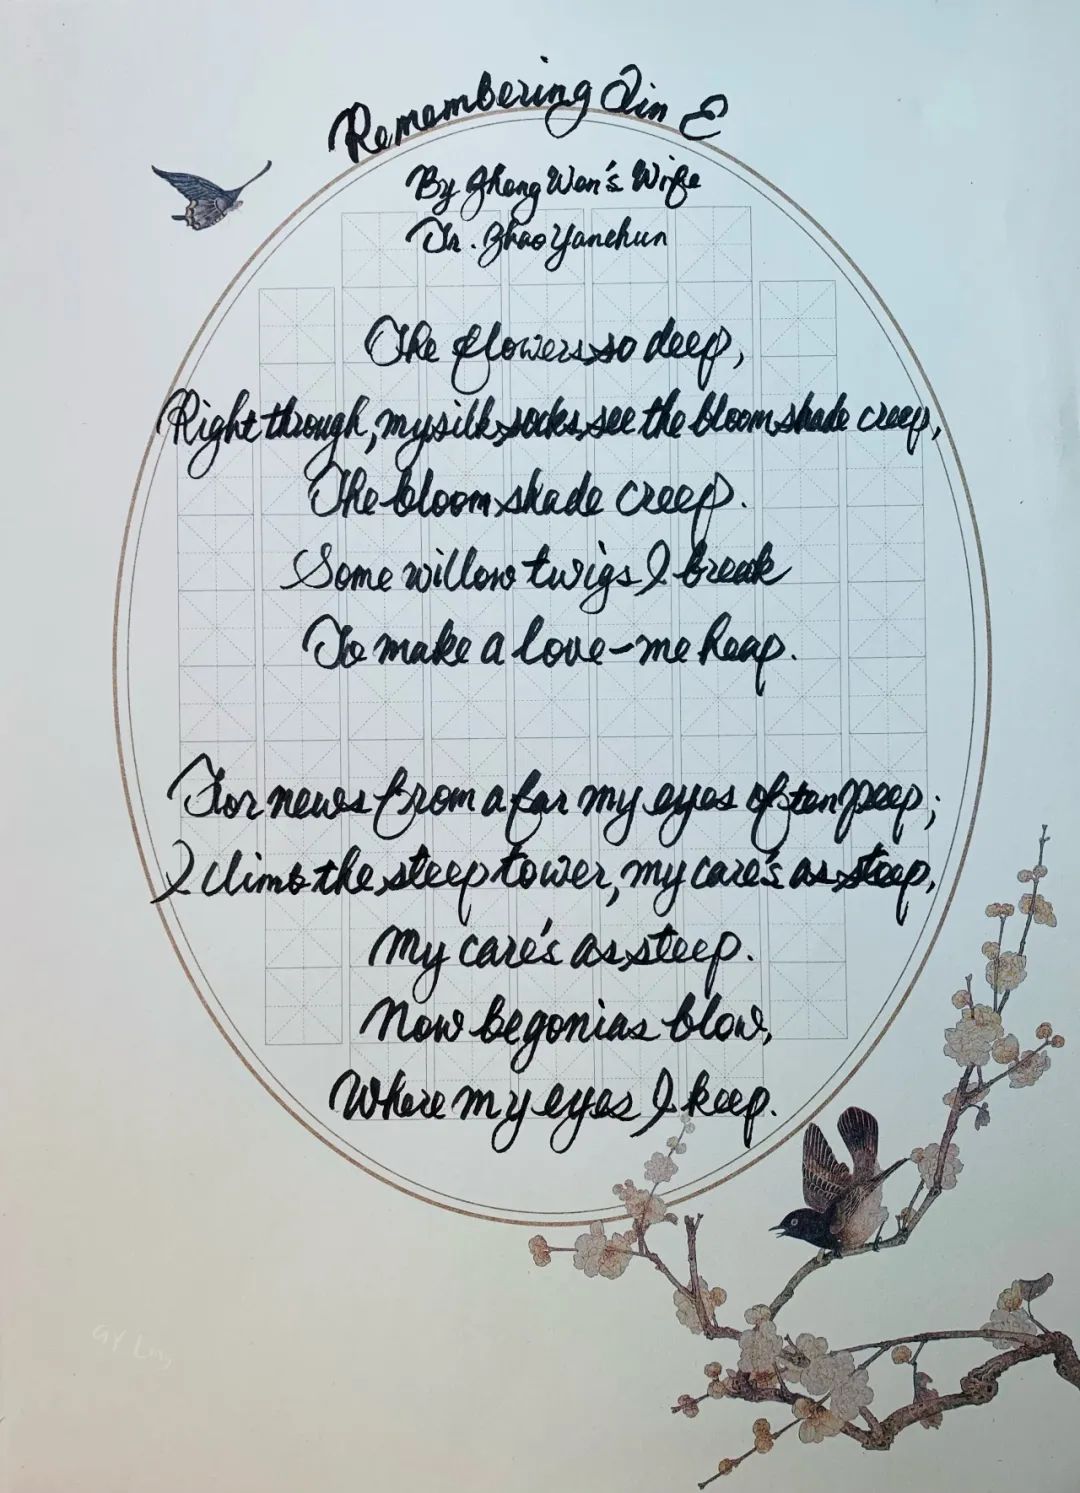 Remembering Qin E
By Zheng Wen's Wife
Tr. Zhao Yanchun
The flowers so deep,
Right through, my silk socks see the bloom shade creep,
The bloom shade creep.
Some willow twigs I break
To make a love-me heap.
For news from afar my eyes often peep;
I climb the steep tower, my care's as steep,
My care's as steep.
Now begonias blow,
Where my eyes I keep.